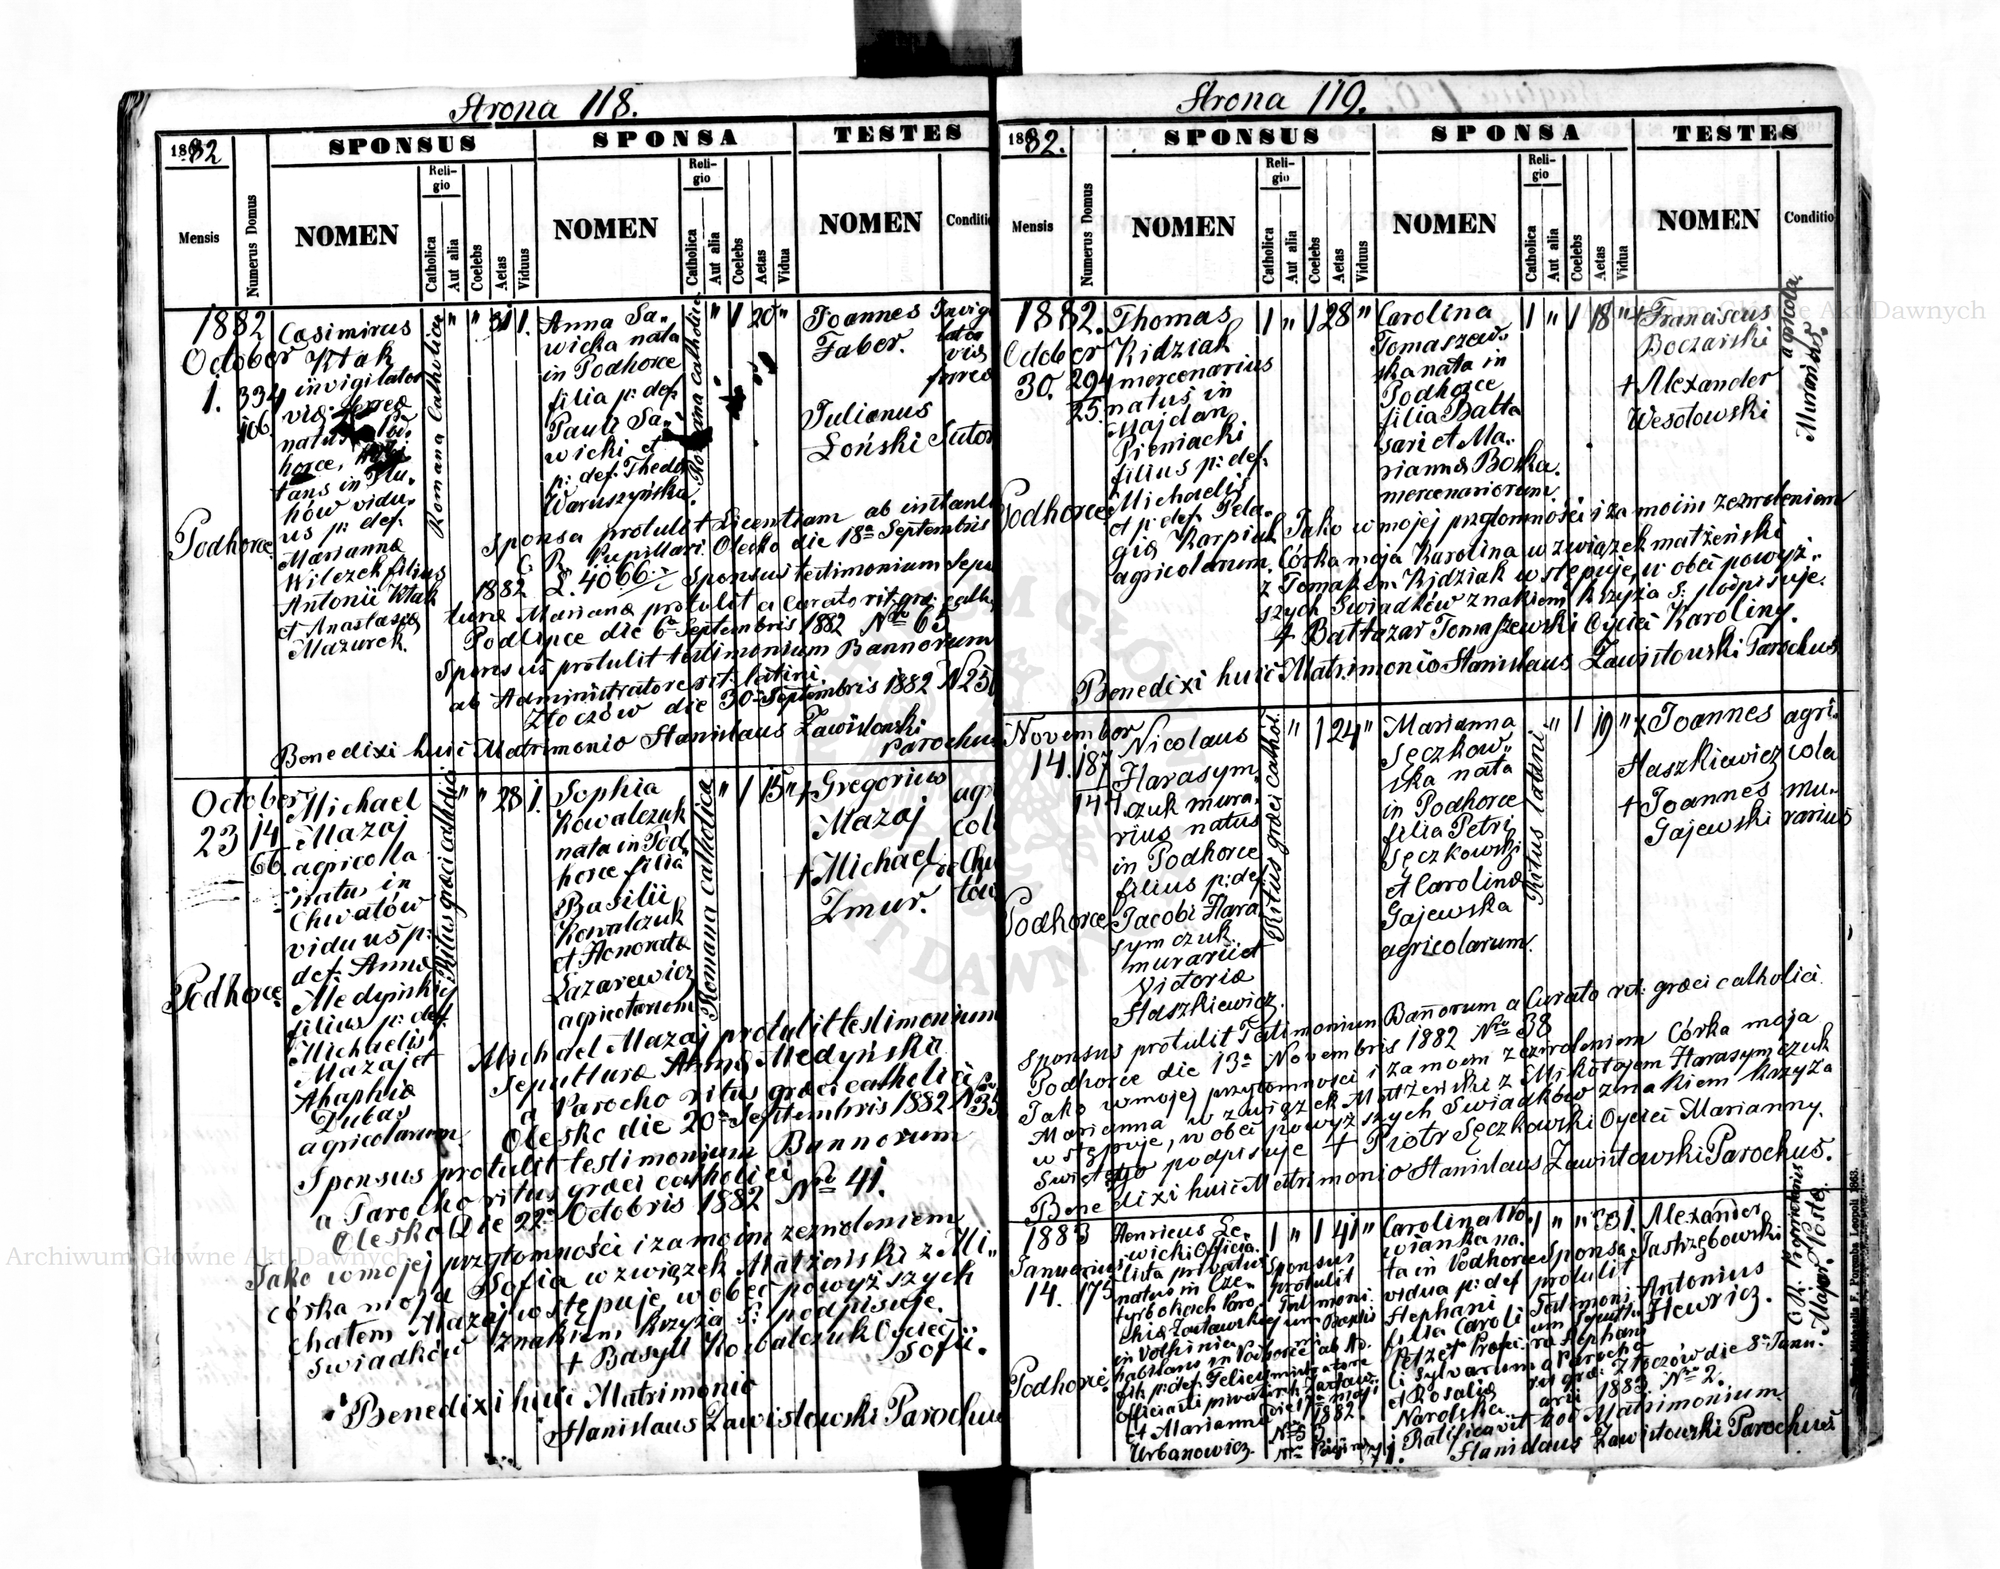 Strona 118.
1882
SPONSUS
SPONSA
TESTES
Mensis
Numerus Domus
NOMEN
Religio
Catholica
Aut alia
Coelebs
Aetas
Viduus
NOMEN
Religio
Catholica
Aut alia
Coelebs
Aetas
Vidua
NOMEN
Conditio
1882
October
1.
334
106.
Podhorce
Casimirus
Kłak
invigilator
viæ ferreæ
natus
horce,
tans in Płu
hów vidu-
us p: def.
Mariannæ
Wilczek filius
Antonii Kłak
et Anastasiæ
Mazurek.
Romana Catholica
" " 31 1.
Anna Sa-
wicka nata
in Podhorce
filia p: def.
Pauli Sa-
wicki et
p: def. Theod
Waruszyńska.
Romana catholica
" 1 20 "
Joannes
Faber.
Invigi
lator
viæ
ferreæ
Julianus
Łoński
Sutor
Sponsa protulit Licentiam ab instant
C. R. Pupillari Olesko die 18a Septembris
1882 L. 4066. Sponsus testimonium sepul
turæ Mariannæ protulit a Curato rit. gr. cath.
Podlipce die 6a Septembris 1882 Nro 65
Sponsus protulit testimonium Bannorum
ab Administratore rit. latini.
Złoczów die 30a Septembris 1882 N 250
Benedixi huic Matrimonio Stanislaus Zawistowski
Parochus
October
23
14
66.
Podhorce
Michael
Mazaj
agricolla
natus in
Chwatów
viduus p:
def. Annæ
Medyński
filius p: def.
Michaelis
Mazaj et
Ahaphiæ
Dubas
agricolarum
Ritus græci catholici
" " 28 1.
Sophia
Kowalczuk
nata in Pod-
horce filia
Basilii
Kowalczuk
et Honorata
Łazarewicz
agricolarum
Romana catholica
" 1 15 "
+ Gregorius
Mazaj
agri
cola
+ Michael
Zmur.
de Chwa
tów
Michael Mazaj protulit testimonium
Sepulturæ Annæ Medyńska
a Parocho ritus græci catholici
Olesko die 20a Septembris 1882 N 35
Sponsus protulit testimonium Bannorum
a Parocho ritus græci catholici
Olesko Die 22a Octobris 1882 Nro 41.
Jako w mojej przytomności i za moim zezwoleniem
córka moja Zofia w związek Małżeński z Mi-
chałem Mazaj wstępuje w obec powyższych
Swiadków znakiem krzyża S: podpisuje.
+ Basyli Kowalczuk Ojciec
Sofii.
Benedixi huic Matrimonio
Stanislaus Zawistowski Parochus
Strona 119.
1882.
SPONSUS
SPONSA
TESTES
Mensis
Numerus Domus
NOMEN
Religio
Catholica
Aut alia
Coelebs
Aetas
Viduus
NOMEN
Religio
Catholica
Aut alia
Coelebs
Aetas
Vidua
NOMEN
Conditio
1882.
October
30.
294
25.
Podhorce
Thomas
Kidziak
mercenarius
natus in
Majdan
Pieniacki
filius p: def.
Michaelis
et p: def. Pela-
giæ Karpiuk
agricolarum.
1 " 1 28 "
Carolina
Tomaszew-
ska nata in
Podhorce
filia Balta
sari et Ma-
riannæ Boska.
mercenariorum
1 " 1 18 "
+ Franciscus
Boczański
agricola
+ Alexander
Wesołowski
Murarius
Jako w mojej przytomności i za moim zezwoleniem
Córka moja Karolina w związek małżeński
z Tomaszem Kidziak wstępuje, w obec powyż-
szych Swiadków znakiem krzyża S: podpisuje.
+ Baltazar Tomaszewski Ojciec Karoliny.
Benedixi huic Matrimonio Stanislaus Zawistowski Parochus
November
14.
187
144
Podhorce
Nicolaus
Harasym
czuk mura-
rius natus
in Podhorce
filius p: def
Jacobi Hara
symczuk
murarii et
Victoriæ
Haszkiewicz.
Ritus græci cathol.
" 1 24 "
Marianna
Sęczkow-
ska nata
in Podhorce
filia Petri
Sęczkowski
et Carolinæ
Gajewska
agricolarum.
Ritus latini
" 1 19 "
+ Joannes
Haszkiewicz
agri-
cola
+ Joannes
Gajewski
mu-
rarius
Sponsus protulit Testimonium Bannorum a Curato rit. græci catholici
Podhorce die 13a Novembris 1882 Nro 38
Jako w mojej przytomności i za moem zezwoleniem Córka moja
Marianna w związek Małżeński z Mikołajem Harasymczuk
wstępuje, w obec powyższych Swiadków znakiem krzyża
Swiętego podpisuje + Piotr Sęczkowski Ojciec Marianny.
Benedixi huic Matrimonio Stanislaus Zawistowski Parochus.
1883
Januarius
14.
175
Podhorce.
Henricus Le-
wicki Officia-
lista privatus
natus in Cze-
in Volhinia
habitans in Podhorce
filius p: def. Felicis
Officiasti privati
et Mariannæ
Urbanowicz.
1 " 1 41 "
Sponsus
protulit
Testimoni-
um Baptis
mi
ab Ad-
ministratore
1882.
Carolina No-
wianka na-
ta in Podhorce
vidua p: def
Stephani
filia Caroli
Petzel Præfec
ti Sylvarum
et Rosaliæ
Narolska
1 " " 33 1.
Sponsa
protulit
Testimoni
um Sepultu
ræ Stephani
a Parocho
rit. græ: Złoczów die 8a Janu-
arii 1883 Nro 2.
Alexander
Jastrzębowski
Antonius
Hewricz.
Ratificavit hoc Matrimonium
Stanislaus Zawistowski Parochus
Archiwum Główne Akt Dawnych
Archiwum Główne Akt Dawnych